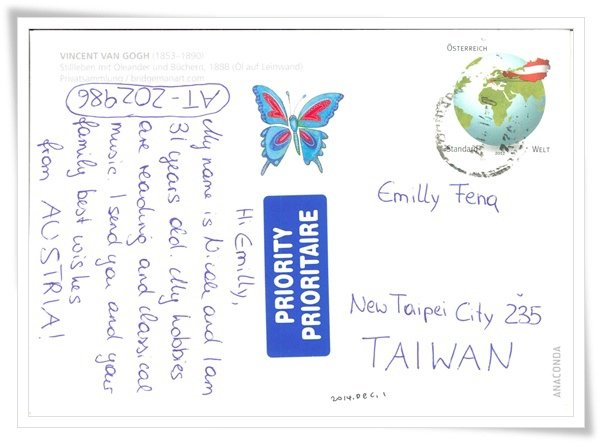 VINCENT VAN GOGH (1853–1890)
Stillleben mit Oleander und Büchern, 1888 (Öl auf Leinwand)
Privatsammlung / bridgemanart.com
AT-202986
Hi Emilly,
My name is Nicole and I am
31 years old. My hobbies
are reading and classical
music. I send you and your
family best wishes
from AUSTRIA!
PRIORITY
PRIORITAIRE
ÖSTERREICH
Standard
WELT
Emilly Feng
New Taipei City 235
TAIWAN
2014.DEC.1
ANACONDA